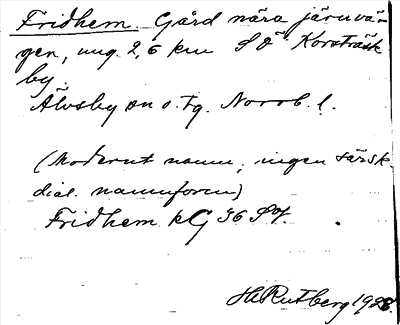 Fridhem. Gård nära järnvä-
gen, ung. 2,6 km S Ö Korsträsk
by.
Älvsby sn o. tg. Norrb. l.
(Modernt namn, ingen särsk.
dial. namnform)
Fridhem kG 36
H Rutberg 1928.